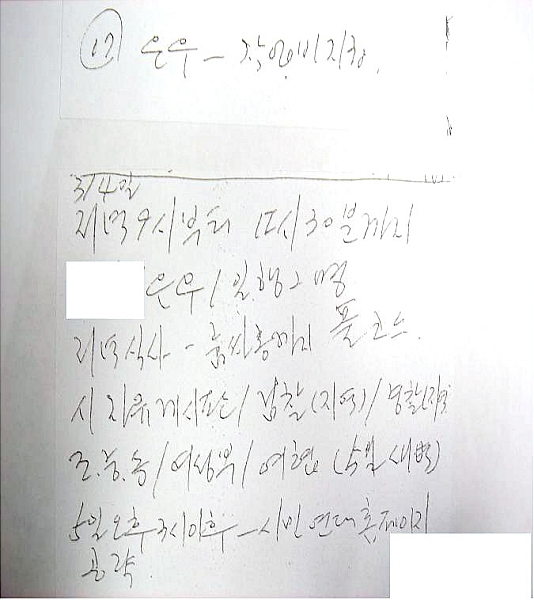 17 은우 - 작업비지원.
3/4일
저녁 9시부터 12시 30분까지
은우 / 일행 2명
저녁식사 - 룸싸롱까지 풀코스.
시 자유게시판 / 검찰(지역) / 경찰(지역)
조.중.동 / 여성부 / 여현 (5일 새벽)
5일 오후 3시이후 - 시민연대 홈페이지
공략.